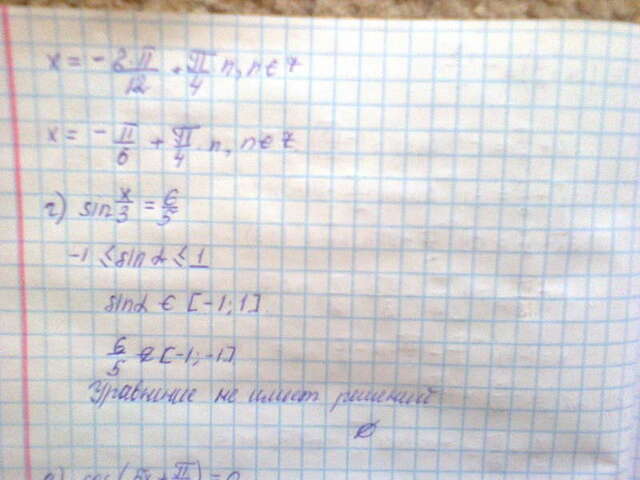 x = - 2π/12 + π/4 n, n ∈ z
x = - π/6 + π/4 n, n ∈ z
г) sin x/3 = 6/5
-1 ≤ sin α ≤ 1
sin α ∈ [-1; 1]
6/5 ∉ [-1; -1]
Уравнение не имеет решений
∅
cos(5x + π
) = 0